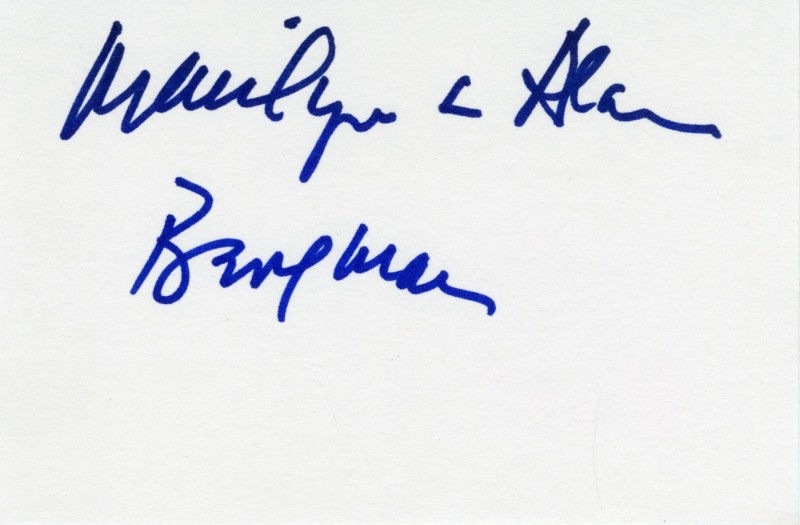 Marilyn & Alan
Bergman